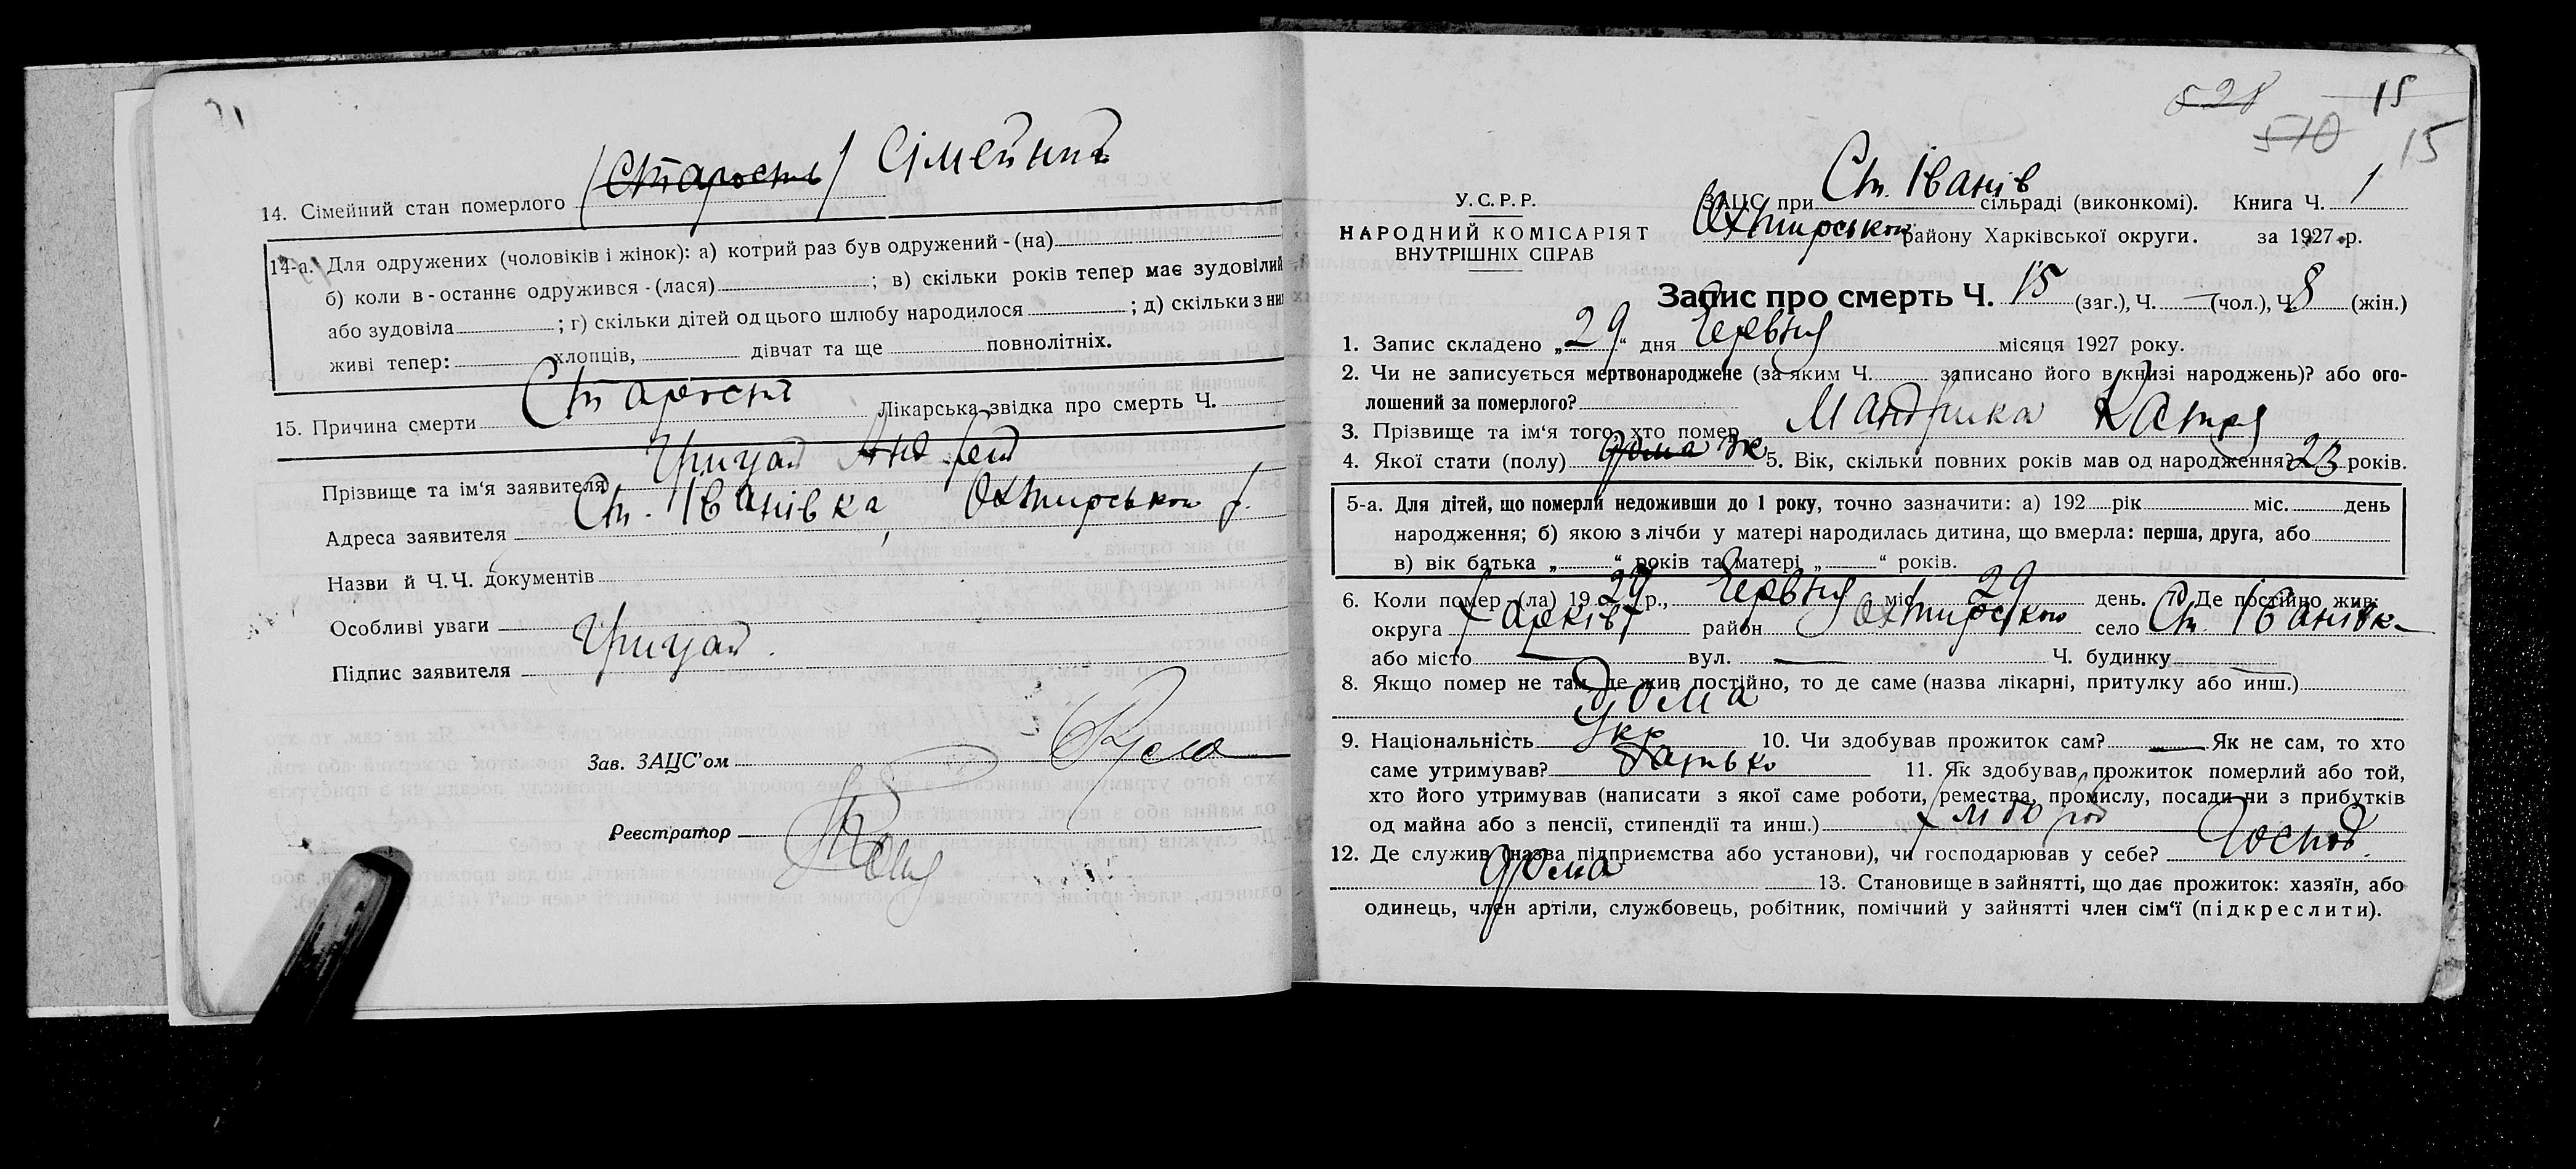 14. Сімейний стан померлого (Старость) Сімейний
14-а. Для одружених (чоловіків і жінок): а) котрий раз був одружений - (на)
б) коли в - останнє одружився - (лася) ; в) скільки років тепер має зудовілий
або зудовіла ; г) скільки дітей од цього шлюбу народилося ; д) скільки з ни
живі тепер: хлопців, дівчат та ще повнолітніх.
15. Причина смерти Старость Лікарська звідка про смерть Ч.
Прізвище та ім'я заявителя Грицай Андрей
Адреса заявителя Ст. Іванівка, Охтирського р.
Назви й Ч.Ч. документів
Особливі уваги
Підпис заявителя Грицай
Зав. ЗАЦС'ом
Реєстратор
528 15
510 15
У. С. Р. Р.
НАРОДНИЙ КОМІСАРІЯТ
ВНУТРІШНІХ СПРАВ
ЗАЦС при Ст. Іванів сільраді (виконкомі). Книга Ч. 1
Охтирського району Харківської округи. за 1927 р.
Запис про смерть Ч. 15 (заг.), Ч. — (чол.), Ч. 8 (жін.)
1. Запис складено „29“ дня Червня місяця 1927 року.
2. Чи не записується мертвонароджене (за яким Ч. записано його в книзі народжень)? або ого-
лошений за померлого?
3. Прізвище та ім'я того, хто помер Мандрика Катря
4. Якої стати (полу) дома ж 5. Вік, скільки повних років мав од народження? 23 років.
5-а. Для дітей, що померли недоживши до 1 року, точно зазначити: а) 192 рік міс. день
народження; б) якою з лічби у матері народилась дитина, що вмерла: перша, друга, або
в) вік батька „ “ років та матері „ “ років.
6. Коли помер - (ла) 19 27 р., Червня міс. 29 день. 7. Де постійно жив:
округа Харків район Охтирського село Ст. Іванівка
або місто — вул. — Ч. будинку —
8. Якщо помер не там, де жив постійно, то де саме (назва лікарні, притулку або инш.)
Дома
9. Національність Укр 10. Чи здобував прожиток сам? — Як не сам, то хто
саме утримував? Батько 11. Як здобував прожиток померлий або той,
хто його утримував (написати з якої саме роботи, ремества, промислу, посади чи з прибутків
од майна або з пенсії, стипендії та инш.) хлібороб
12. Де служив (назва підприємства або установи), чи господарював у себе? Господ.
дома 13. Становище в зайнятті, що дає прожиток: хазяїн, або
одинець, член артіли, службовець, робітник, помічний у зайнятті член сім'ї (підкреслити).